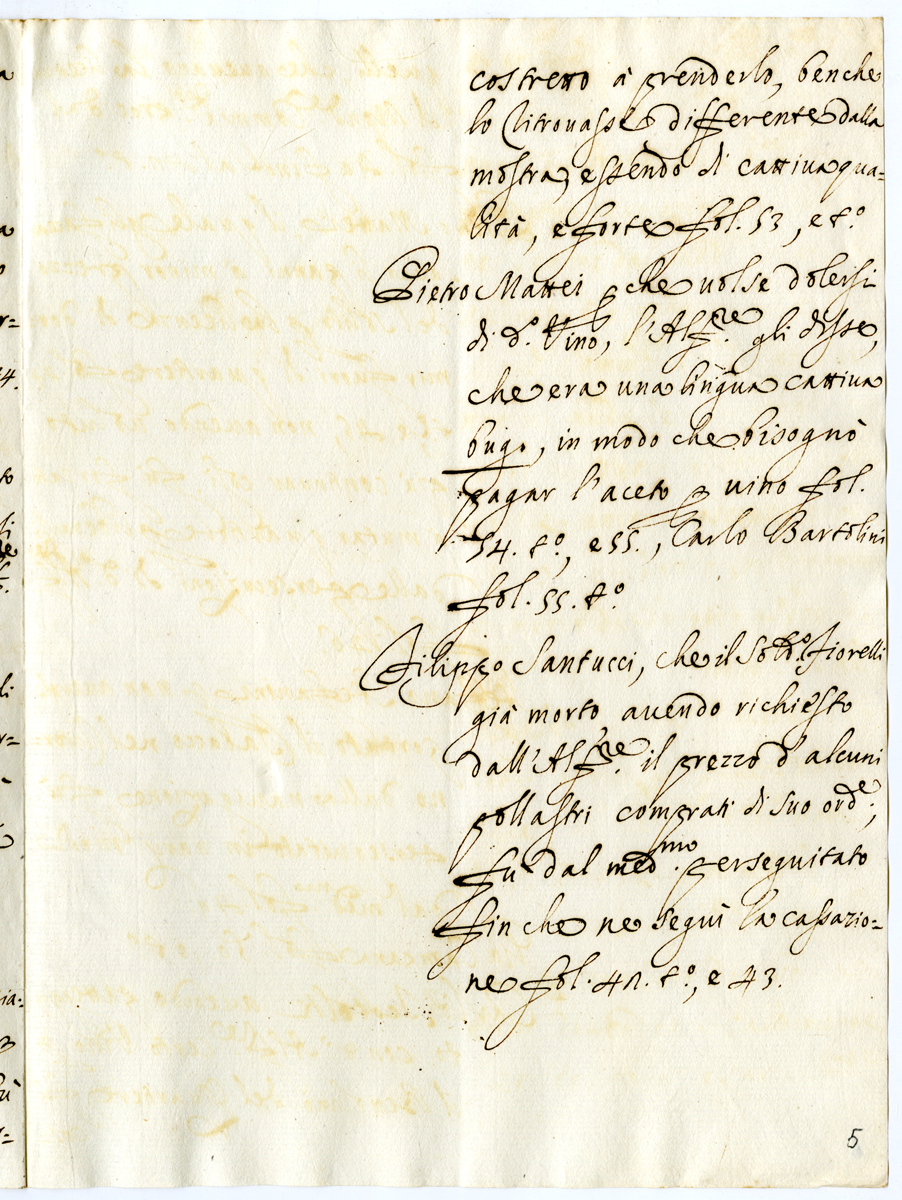 costretto à prenderlo, benche
lo ritrouasse differente dalla
mostra, essendo di cattiua qua=
lità, e forte fol. 53, e t.º
Pietro Mattei che uolse dolersi
di d.º Vino, l'Alf.re gli disse,
che era una lingua cattiua
bug.
, in modo che bisognò
pagar l'aceto p uino fol.
54. t.º, e 55., Carlo Bartolini
fol. 55. t.º
Filippo Santucci, che il Fiorelli
già morto auendo richiesto
dall'Alf.re il prezzo d'alcuni
pollastri comprati di suo ord.e,
fù dal med.mo perseguitato
fin che ne seguì la cassazio=
ne fol. 42. t.º, e 43.
5